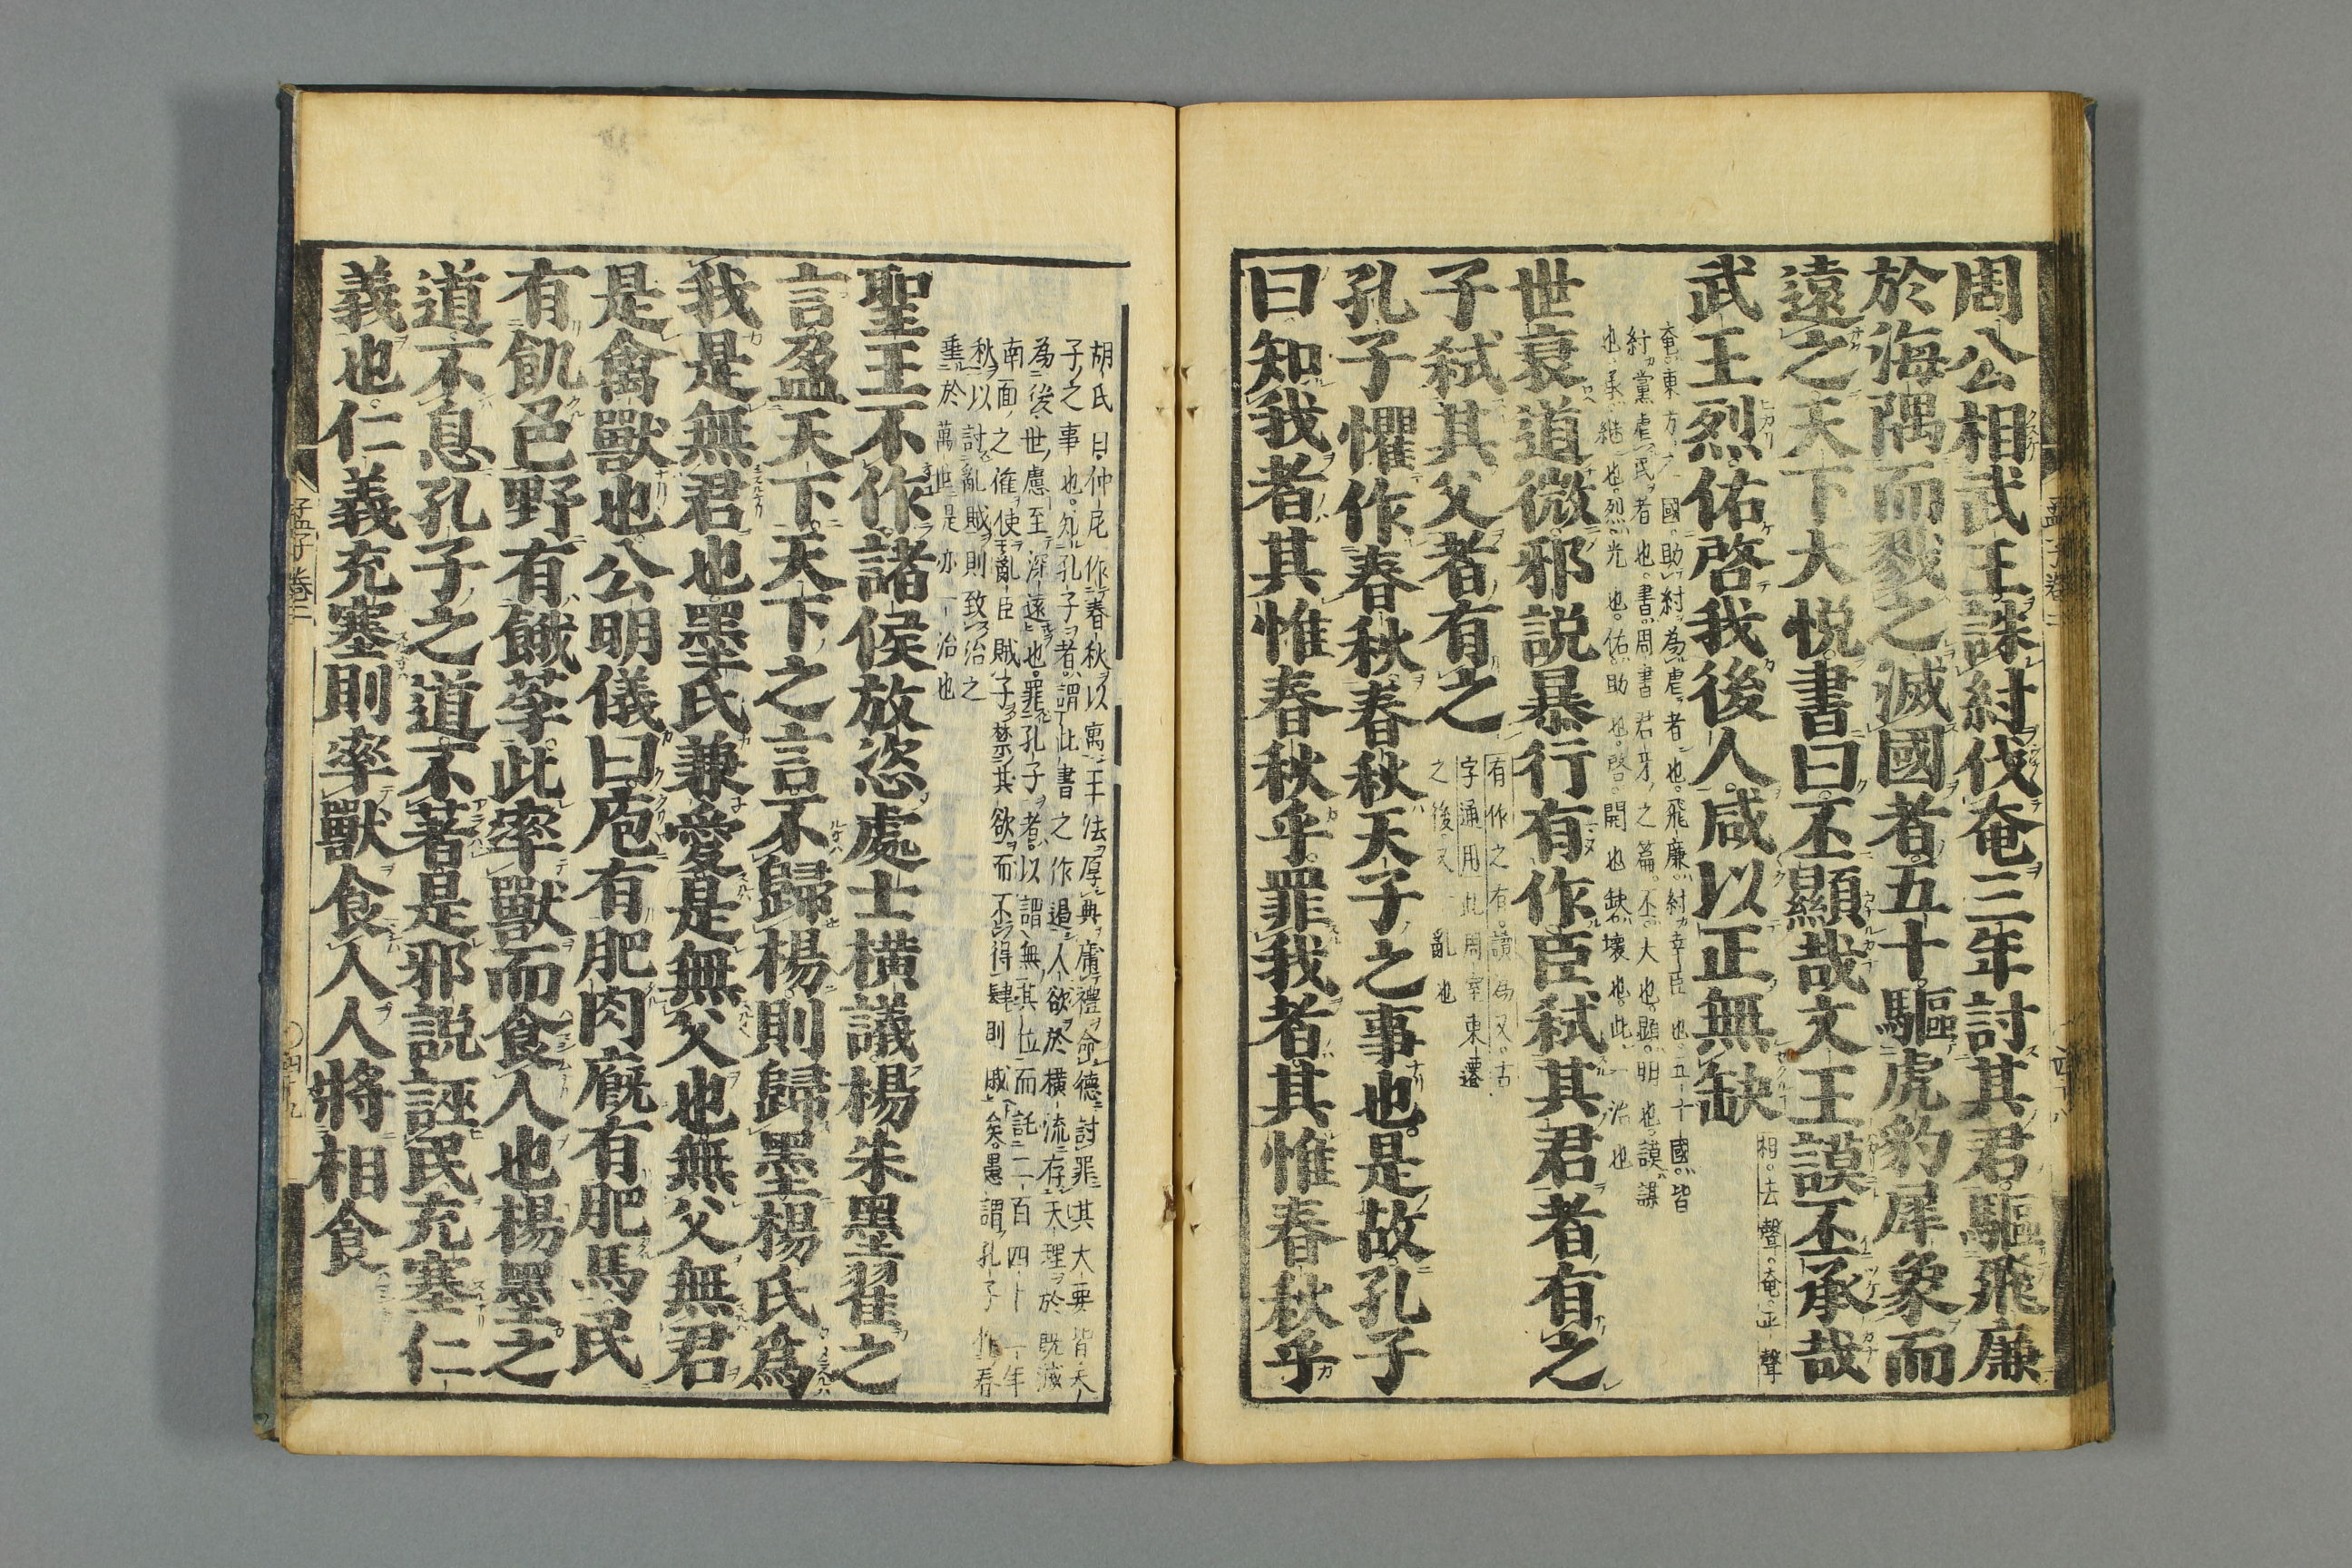 周公相武王誅紂伐奄三年討其君驅飛廉
於海隅而戮之滅國者五十驅虎豹犀象而
遠之天下大悦書曰丕顯哉文王謨丕承哉
武王烈佑啓我後人咸以正無缺
相。去聲。奄。平聲
奄。東方之國。助紂為虐者也。飛廉。紂幸臣也。五十國。皆
紂黨虐民者也。書。周書君牙之篇。丕。大也。顯。明也。謨。謀
也。承。繼也。烈。光也。佑。助也。啓。開也。缺。壞也。此一治也
世衰道微邪説暴行有作臣弑其君者有之
子弑其父者有之
有作之有。讀為又。古
字通用。此周室東遷
之後又一亂也
孔子懼作春秋春秋天子之事也是故孔子
曰知我者其惟春秋乎罪我者其惟春秋乎
胡氏曰仲尼作春秋以寓王法厚典庸禮命德討罪其大要皆天
子之事也。知孔子者。謂此書之作遏人欲於横流存天理於既滅
為後世慮至深遠也。罪孔子者。以謂無其位而託二百四十二年
南面之權使亂臣賊子禁其欲而不得肆則戚矣。愚謂孔子作春
秋以討亂賊則致治之
垂於萬世是亦一治也
聖王不作諸侯放恣處士横議楊朱墨翟之
言盈天下天下之言不歸楊則歸墨楊氏為
我是無君也墨氏兼愛是無父也無父無君
是禽獸也公明儀曰庖有肥肉廐有肥馬民
有飢色野有餓莩此率獸而食人也楊墨之
道不息孔子之道不著是邪説誣民充塞仁
義也仁義充塞則率獸食人人將相食
孟子卷三